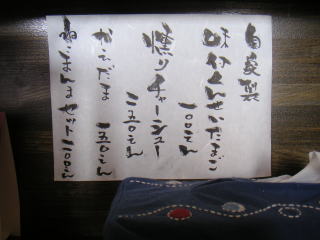 自家製
味付くんせいたまご
一〇〇えん
燻りチャーシュー
二五〇えん
かえだま 一五〇えん
ねこまんませっと 二〇〇えん